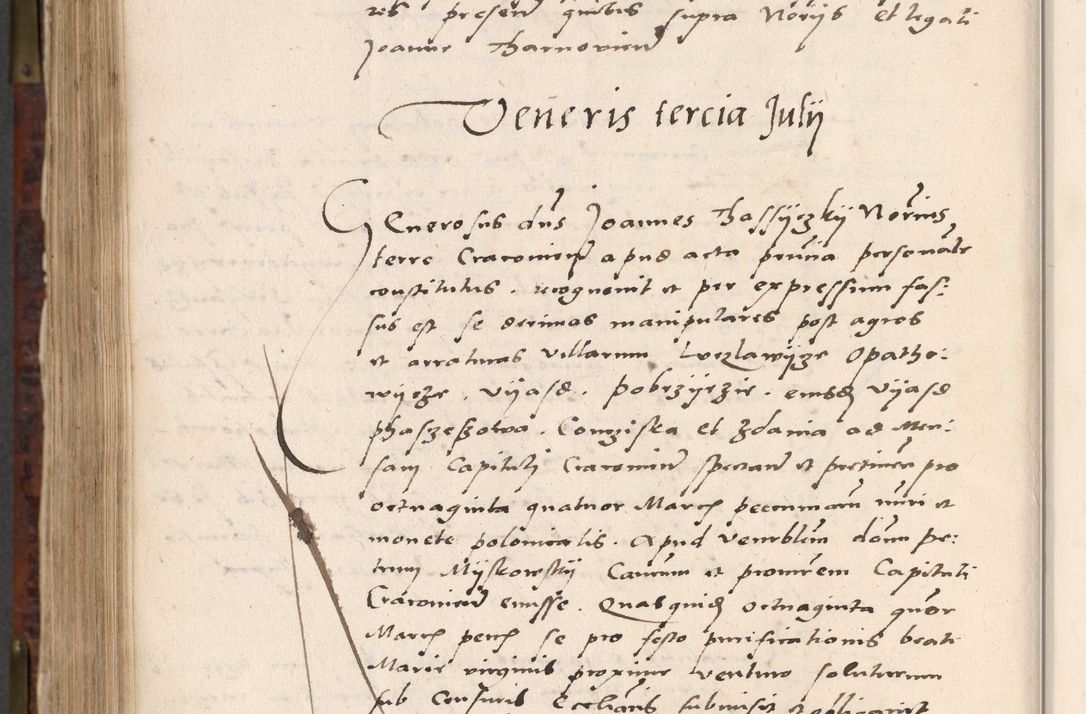 res presen quibus supra Norijs et legati
Joanne Tharnovien
Veneris tercia Julij
Generosus dns Joannes Thassijczkij Norius
terre Cracovien apud acta pruia personalr
constitutus . recognovit et per expressum fas:
sus est se decimas manipulares post agros
et arraturas villarum Opatho:
wijcze . Vijasd . Pobrzijezie . eiusd Vijasd
et Zdania ad Men:
sam Capituli Cracovien spectan et pertinen pro
octuaginta quatuor March pecuniaru nuri et
monete polonicalis . Apud venrblem donm Pe:
trum Mijskowskij Canum et promrem Capituli
Cracovien emisse . Quasquid octuaginta quor
March pench se pro festo purificationis beate
Marie virginis proxime venturo soluturum
sub Censuris Ecclaris submisit et obligavit